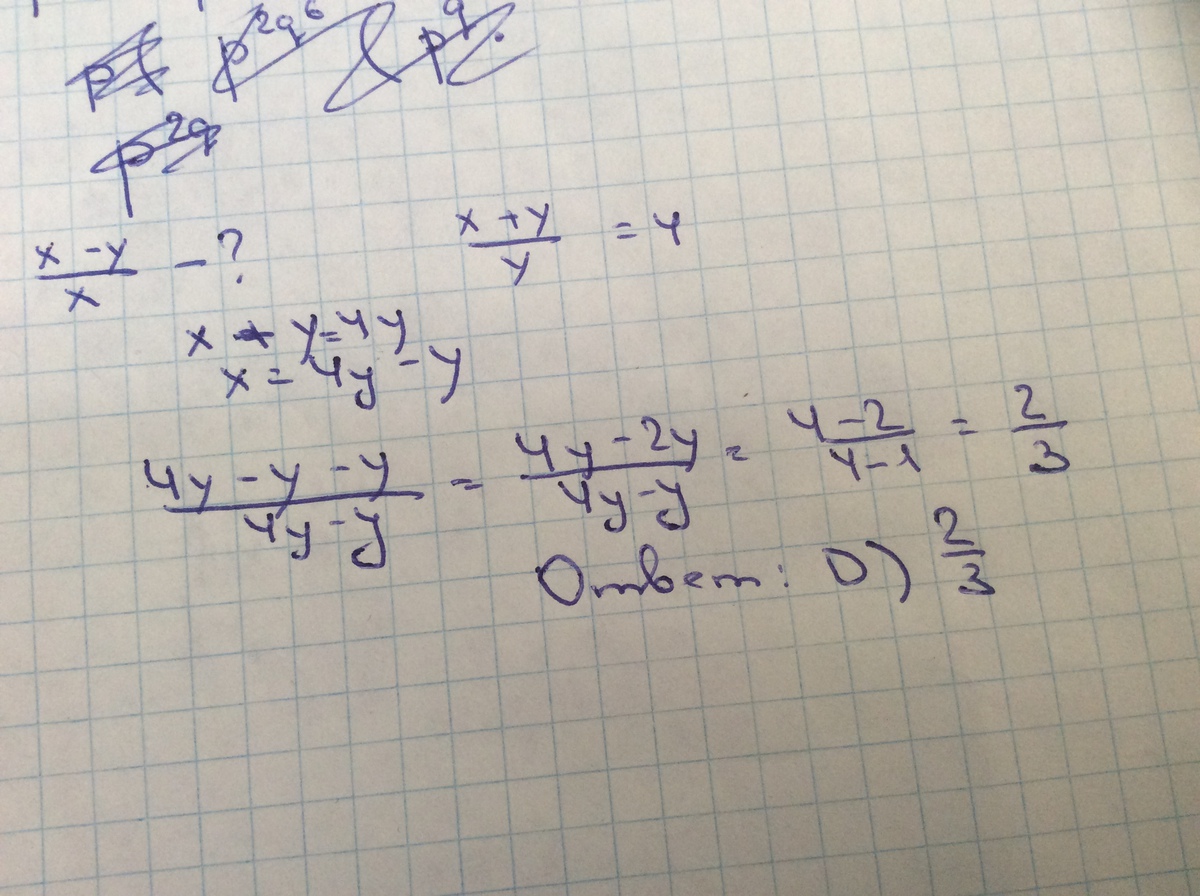 p²q⁶ p^q.
p^2q
(x - y)/x - ? (x + y)/y = 4
x + y = 4y
x = 4y - y
(4y - y - y)/(4y - y) = (4y - 2y)/(4y - y) = (4 - 2)/(4 - 1) = 2/3
Ответ: D) 2/3